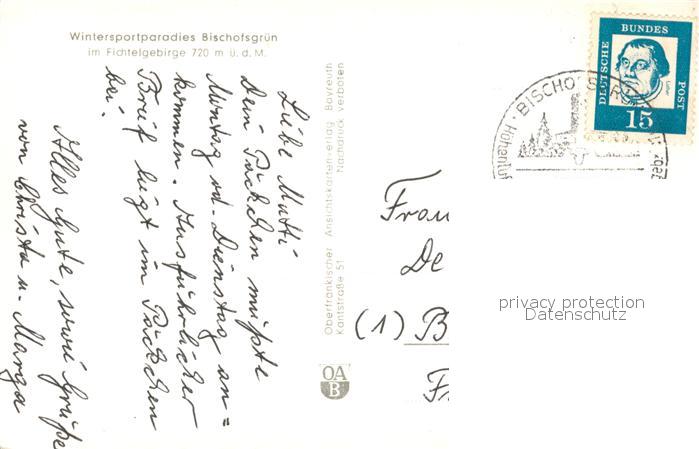 Wintersportparadies Bischofsgrün
im Fichtelgebirge 720 m ü. d. M.
Liebe Mutti
Dein Päckchen müßte
Montag od. Dienstag an=
kommen. Ausführlicher
Brief liegt im Päckchen
bei.
Alles Gute, sowie Grüße
von Christa u. Marga
Oberfränkischer Ansichtskartenverlag Bayreuth
Kantstraße 51 Nachdruck verboten
OA
B
DEUTSCHE
BUNDES
POST
15
BISCHO
Höhenluf
Frau
De
(1) B
privacy protection
Datenschutz